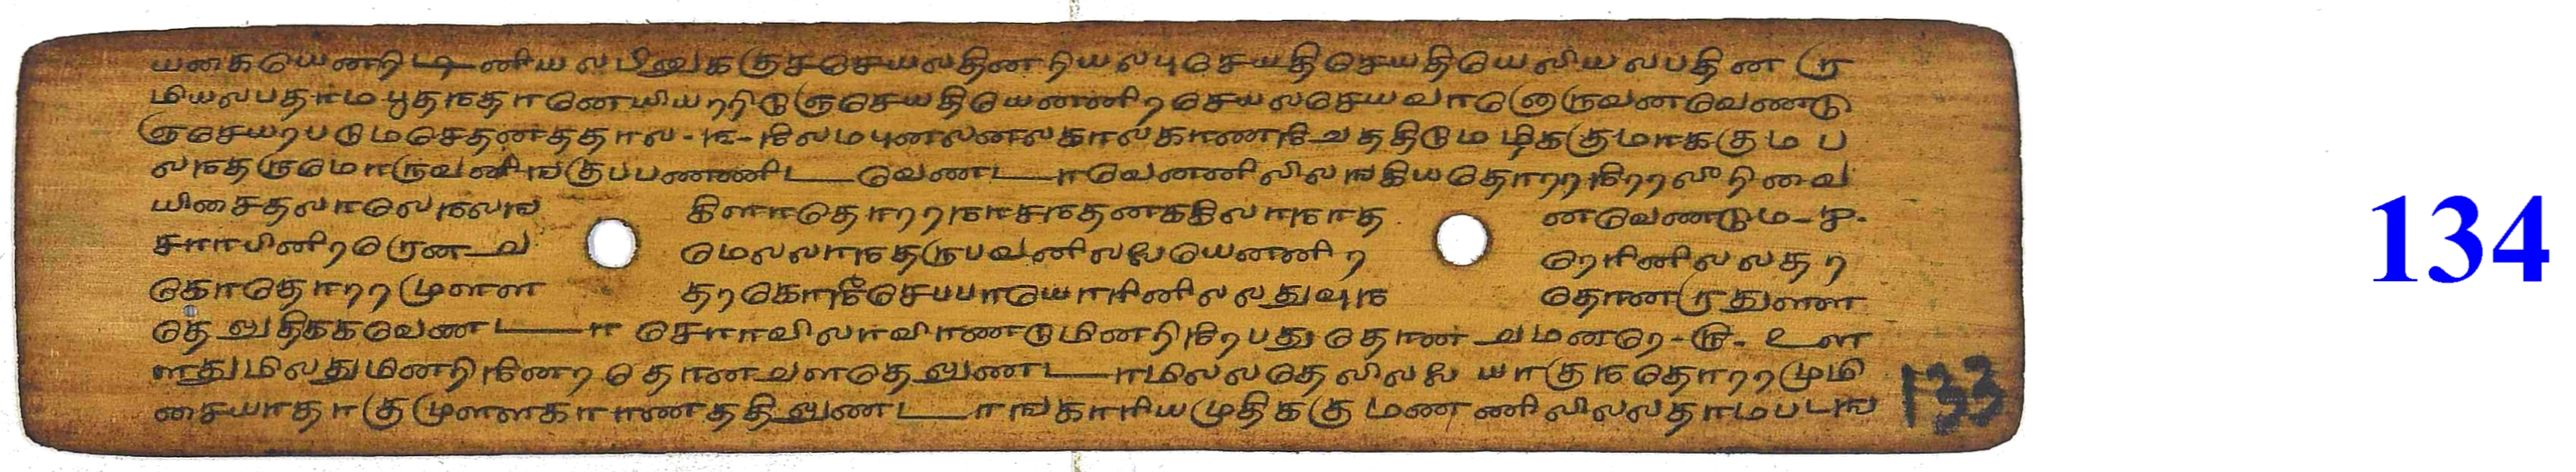 யகையெனறிடினியலபினுககுசசெயலதினறியலபுசெயதிசெயதியெலியலபதினரு
மியலபதாமபூதநதானெயியறறிடுஞசெயதியெணணிறசெயலசெயவானொருவனவெணடு
ஞசெயறபடுமசெதனததால-௩-நிலமபுனலனலகாலகாணநிசெததிடுமழிககுமாககுமப
லநதருமொருவனிஙகுபபணணிடவெணடாவெணணிலிலஙகியதொறறநிறறலீறிவை
யிசைதலாலெநலஙகிளாதொறறநாசநதனககிலாநாதனவெணடும-௪-
சாாயினிறெருனவமெலலாநதருபவனிலலெயெணணிறரெரினிலலதற
கொதொறறமுளளதறகொநீசெபபாயொரினிலலதுவுநதொனருதுளள
தெலுதிககவெணடாசொாவிலாவிாணடுமினறிநிறபதுதொணவமனறெ-௫-உள
ளதுமிலதுமினறிநினறதொனவளதெலுணடாமிலலதெலிலலையாகுநதொறறமுமி
சையாதாகுமுளளகாாணததிலுணடாஙகாரியமுதிககுமணணிலிலலதாமபடாங
133
134